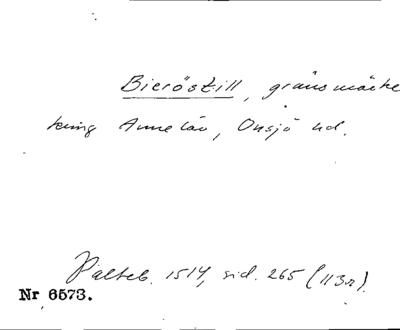 Bieröstill, gränsmärke
kring Annelöv, Onsjö hd.
Palteb. 1514, sid. 265 (113r).
Nr 6573.